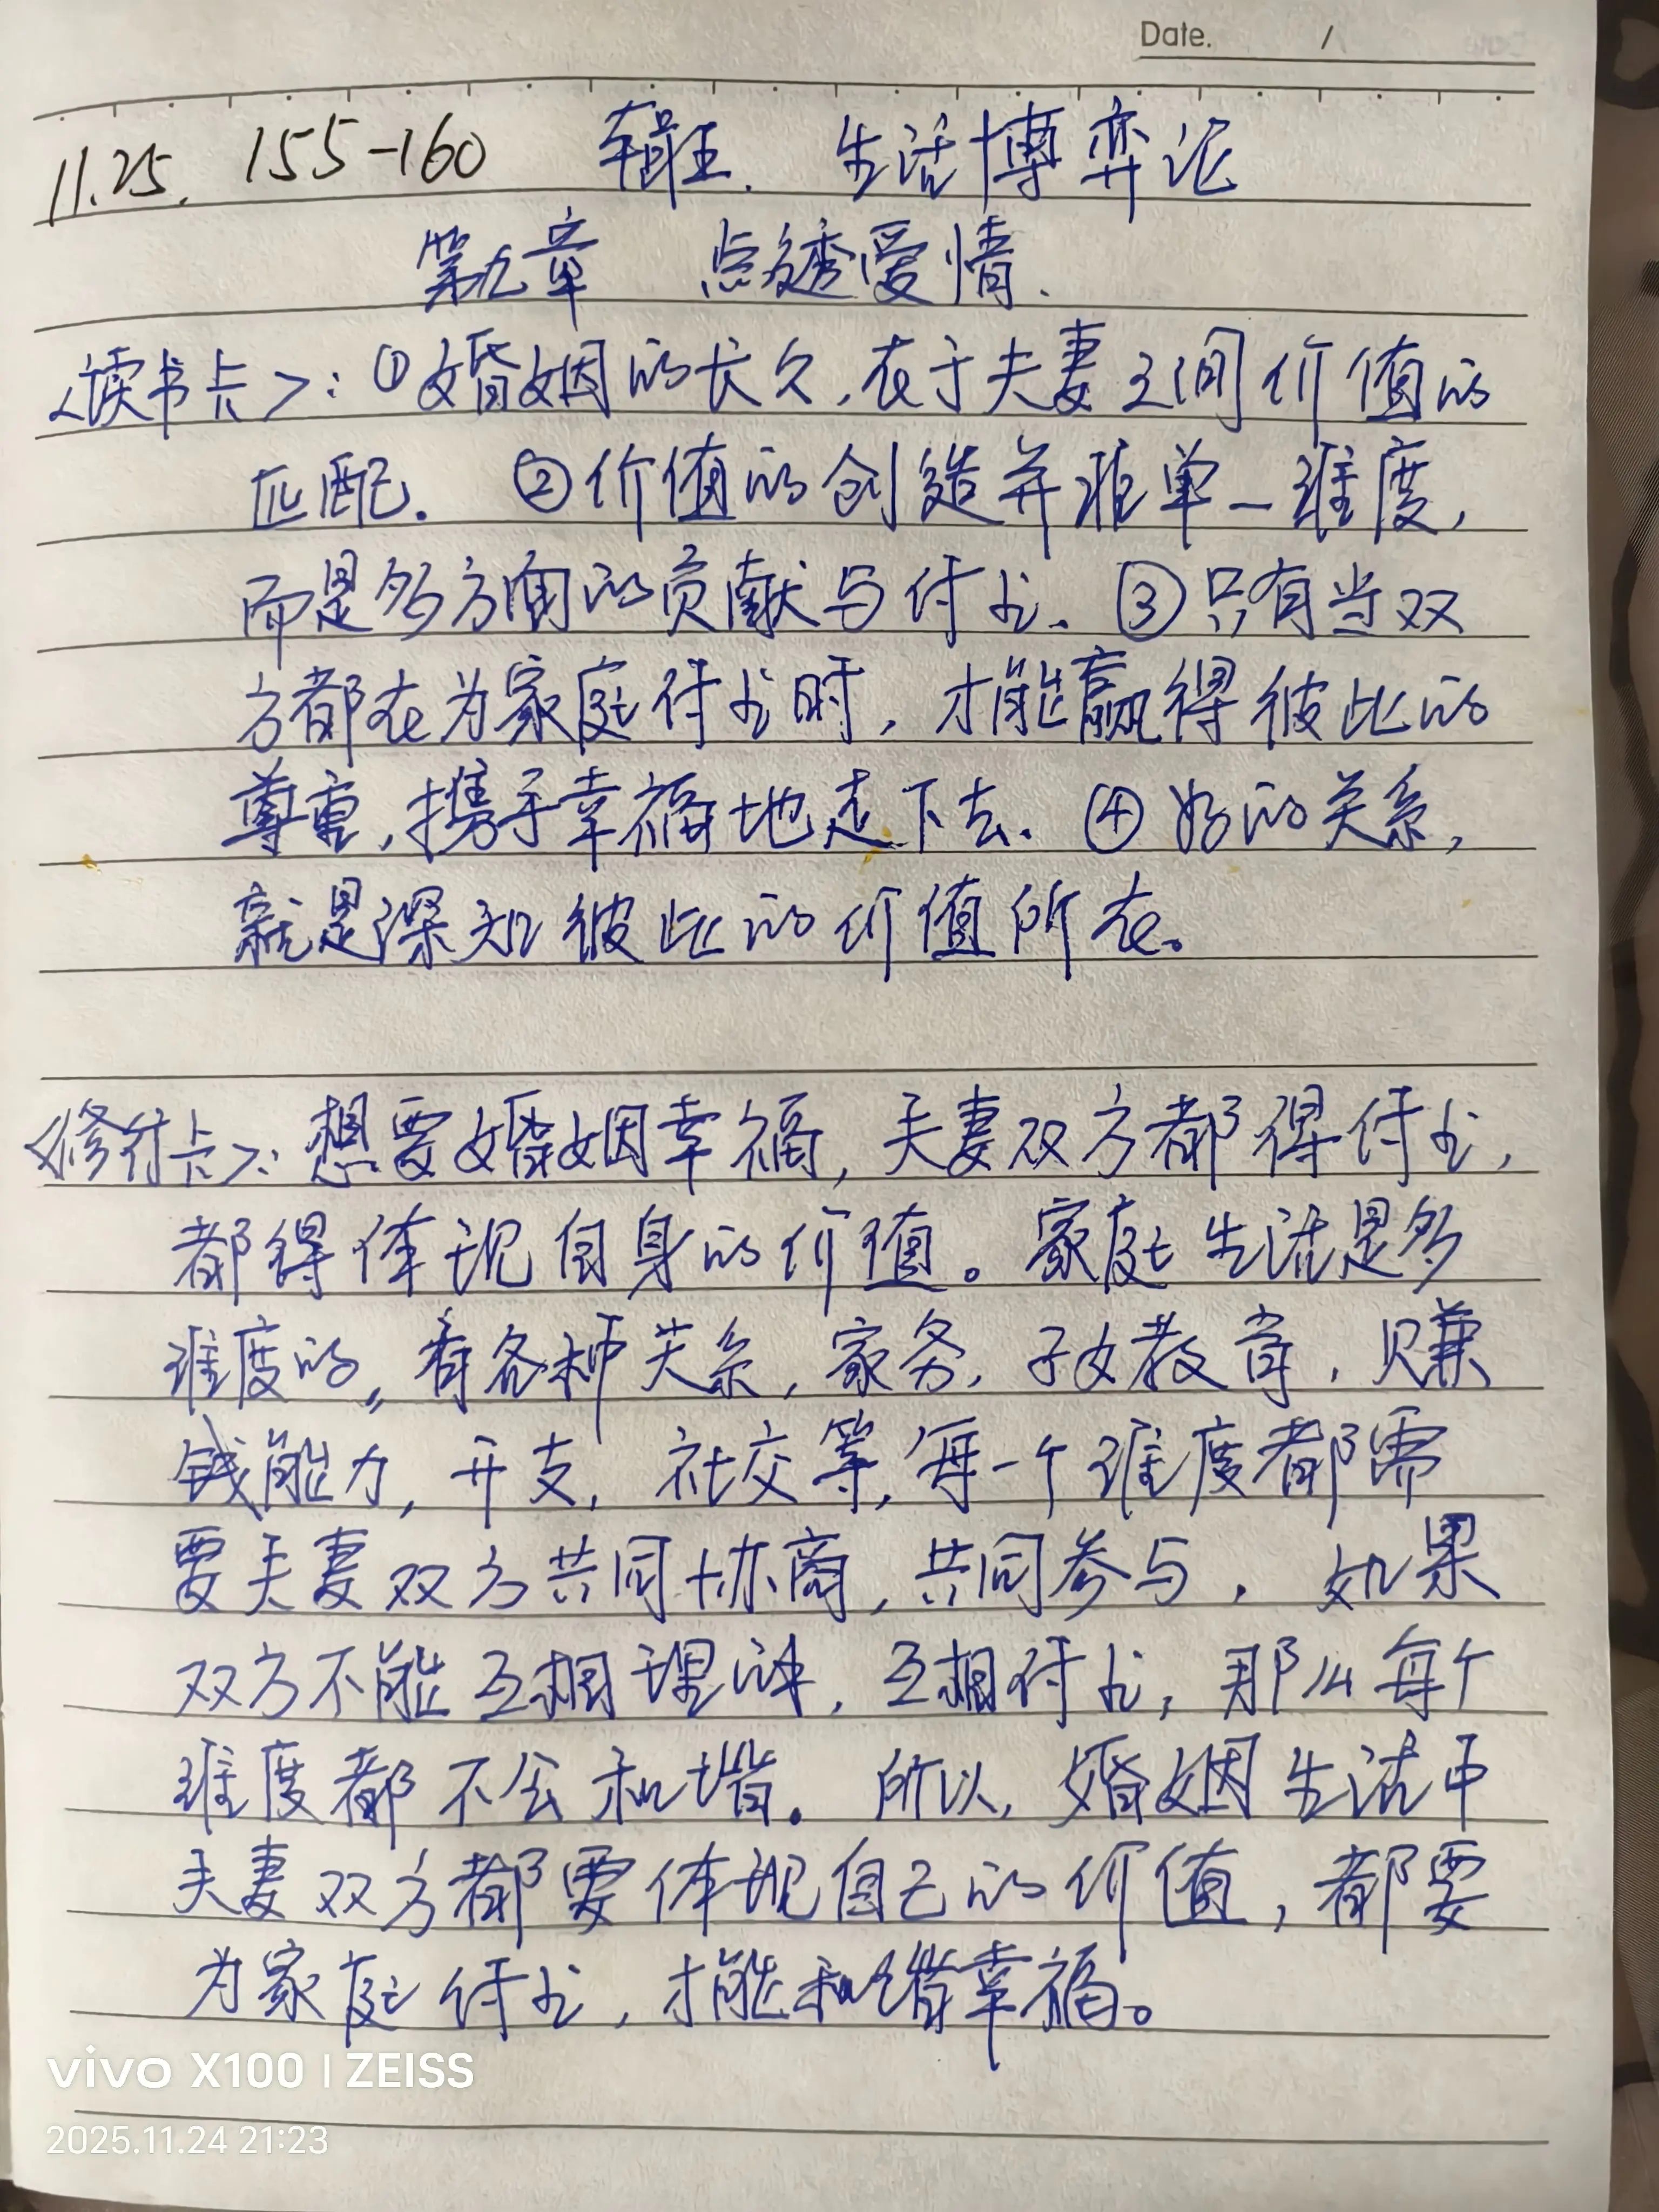 Date. /
11.25. 155-160 辑五. 生活博弈论
第九章 点透爱情.
<读书卡>: ①婚姻的长久,在于夫妻之间价值的
匹配. ②价值的创造并非单一维度,
而是多方面的贡献与付出. ③只有当双
方都在为家庭付出时,才能赢得彼此的
尊重,携手幸福地走下去. ④好的关系,
就是深知彼此的价值所在。
<修行卡>: 想要婚姻幸福,夫妻双方都得付出,
都得体现自身的价值。家庭生活是多
维度的,有各种关系,家务,子女教育,赚
钱能力,开支,社交等,每一个维度都需
要夫妻双方共同协商,共同参与,如果
双方不能互相理解,互相付出,那么每个
维度都不会和谐。所以,婚姻生活中
夫妻双方都要体现自己的价值,都要
为家庭付出,才能和谐幸福。
vivo X100 | ZEISS
2025.11.24 21:23